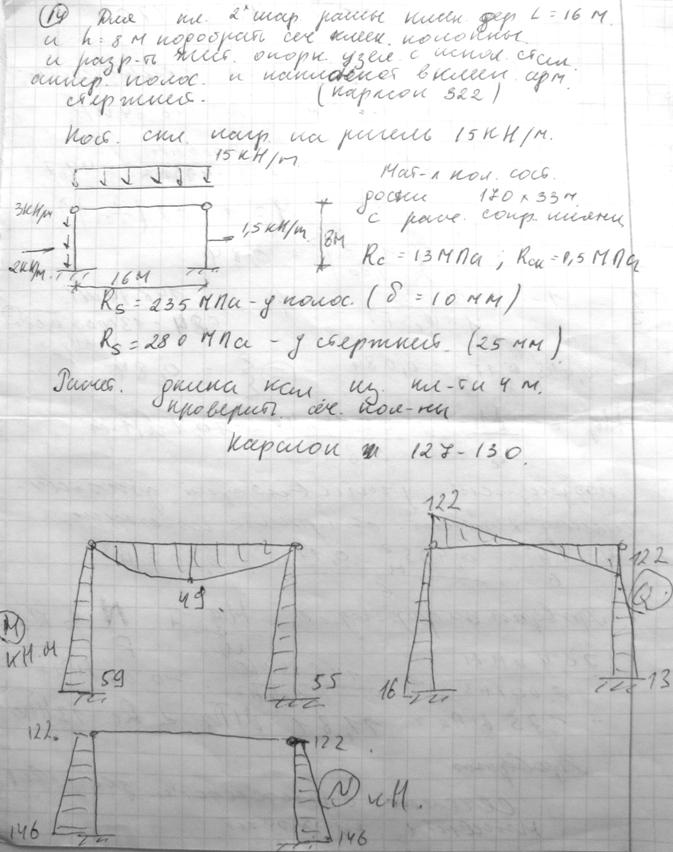 14 Для пл. 2х шар. рамы клеен. дер L = 16 м.
и h = 8 м подобрать сеч клеен. колонны
и разр-ть жест. опорн. узел с испол. стал
анкер. полос. и наклонот вклеен. арм.
стержней. (карлсон 322)
Пост. скл. нагр. на ригель 15 кН/м.
15 кН/м
3 кН/м
2 кН/м.
1,5 кН/м
8м
16 м
Мат-л кол. сост.
доски 170 x 33 м.
Rc = 13 МПа ; Rск = 1,5 МПа
Rs = 235 МПа - у полос. (δ = 10 мм)
Rs = 280 МПа - у стержней. (25 мм)
Расчет. длина кол из пл-ти 4 м.
проверить сеч. кол-ны
Карлсон 127-130.
M
кН.м
49
59
55
122
122
Q
16
13
122.
122
N кН.
146
146